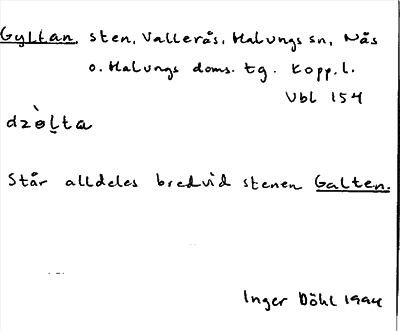 Gyltan, sten, Vallerås, Malungs sn, Nås
o. Malungs doms. tg. Kopp. l.
Vbl 154
dzø̀l̠ta
Står alldeles bredvid stenen Galten.
Inger Döhl 1994